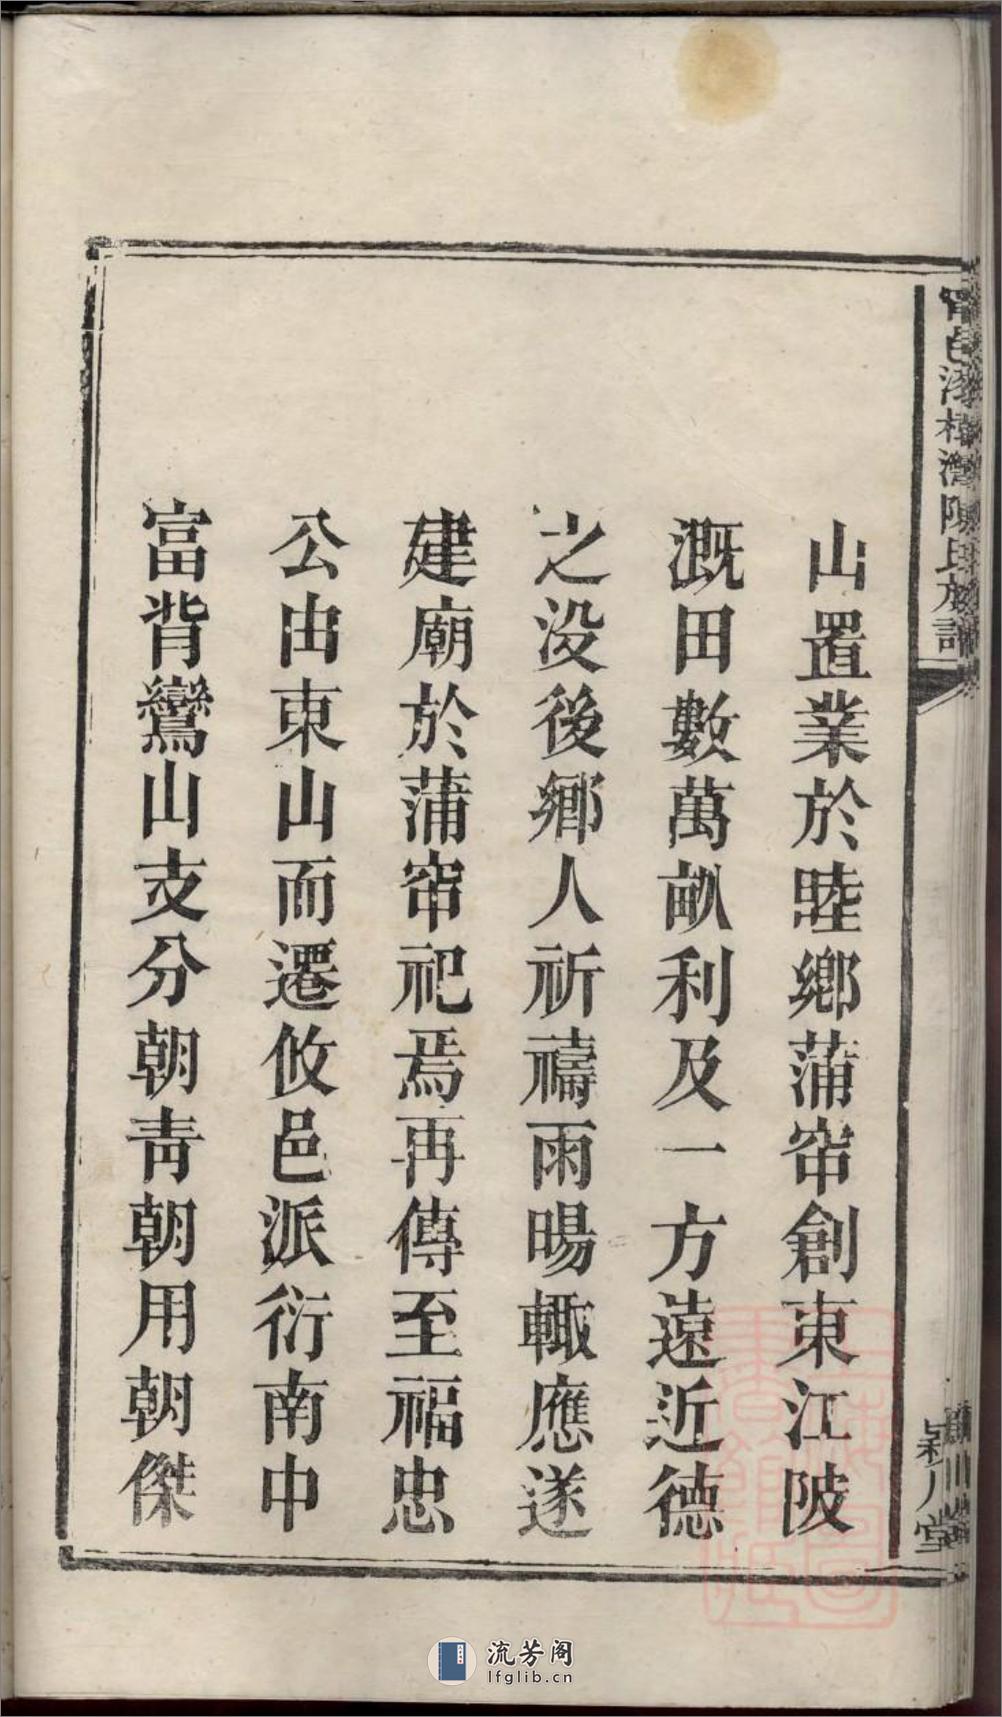 山置業於睦鄉蒲帘創東江陂
溉田數萬畝利及一方遠近德
之没後鄉人祈禱雨暘輙應遂
建廟於蒲帘祀焉再傳至福忠
公由東山而遷攸邑派衍南中
富背鸞山支分朝青朝用朝傑
邑漆樹灣陳氏族譜
川堂
流芳阁
lfglib.cn